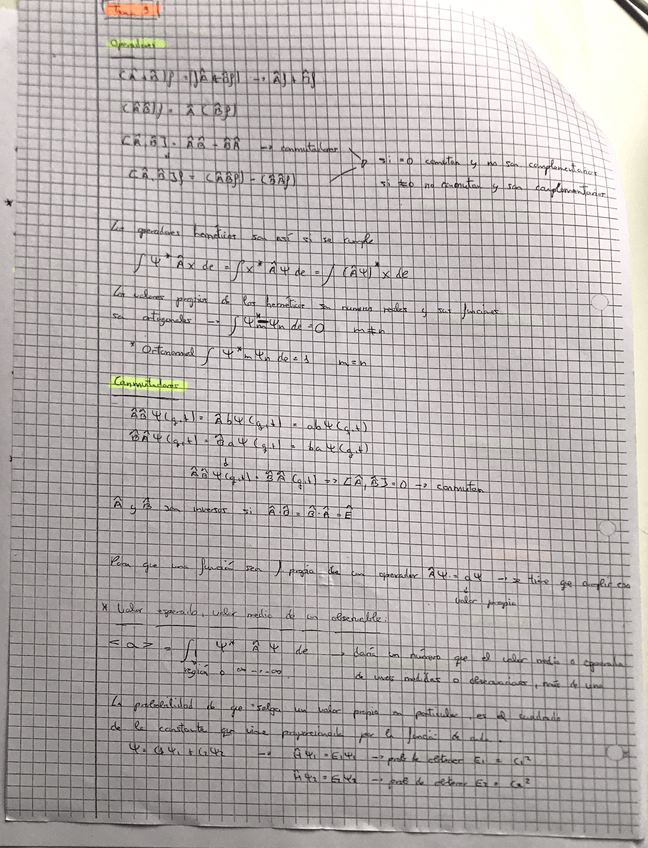 Tema 3
Operadores
(Â + B̂)f = (Âf + B̂f) → Âf + B̂f
(ÂB̂)f = Â(B̂f)
[Â,B̂] = ÂB̂ - B̂Â → conmutadores
[Â,B̂]f = (ÂB̂f) - (B̂Âf)
si = 0 conmutan y no son complementarios
si ≠ 0 no conmutan y son complementarios
Los operadores herméticos son así si se cumple
∫ Ψ* Â x de = ∫ x* Â Ψ de = ∫ (ÂΨ)* x de
Los valores propios de los herméticos son números reales y sus funciones
son ortogonales → ∫ Ψ*m Ψn de = 0 m ≠ n
* Ortonormal ∫ Ψ*m Ψn de = 1 m = n
Conmutadores
ÂB̂Ψ(q,t) = ÂbΨ(q,t) = abΨ(q,t)
B̂ÂΨ(q,t) = B̂aΨ(q,t) = baΨ(q,t)
ÂB̂Ψ(q,t) = B̂Â(q,t) → [Â,B̂] = 0 → conmutan
Â y B̂ son inversos si Â·B̂ = B̂·Â = Ê
Para que una función sea f. propia de un operador ÂΨ = aΨ → se tiene que cumplir eso
valor propio
* Valor esperado, valor medio de un observable.
<a> = ∫ Ψ* Â Ψ de → daría un número que el valor medio o esperado
región o ∞ → -∞ de unas medidas o observaciones, más de una
La probabilidad de que salga un valor propio en particular, es el cuadrado
de la constante que viene proporcionada por la función de onda.
Ψ = C1Ψ1 + C2Ψ2 → ĤΨ1 = E1Ψ1 → prob de obtener E1 = C1²
ĤΨ2 = E2Ψ2 → prob de obtener E2 = C2²